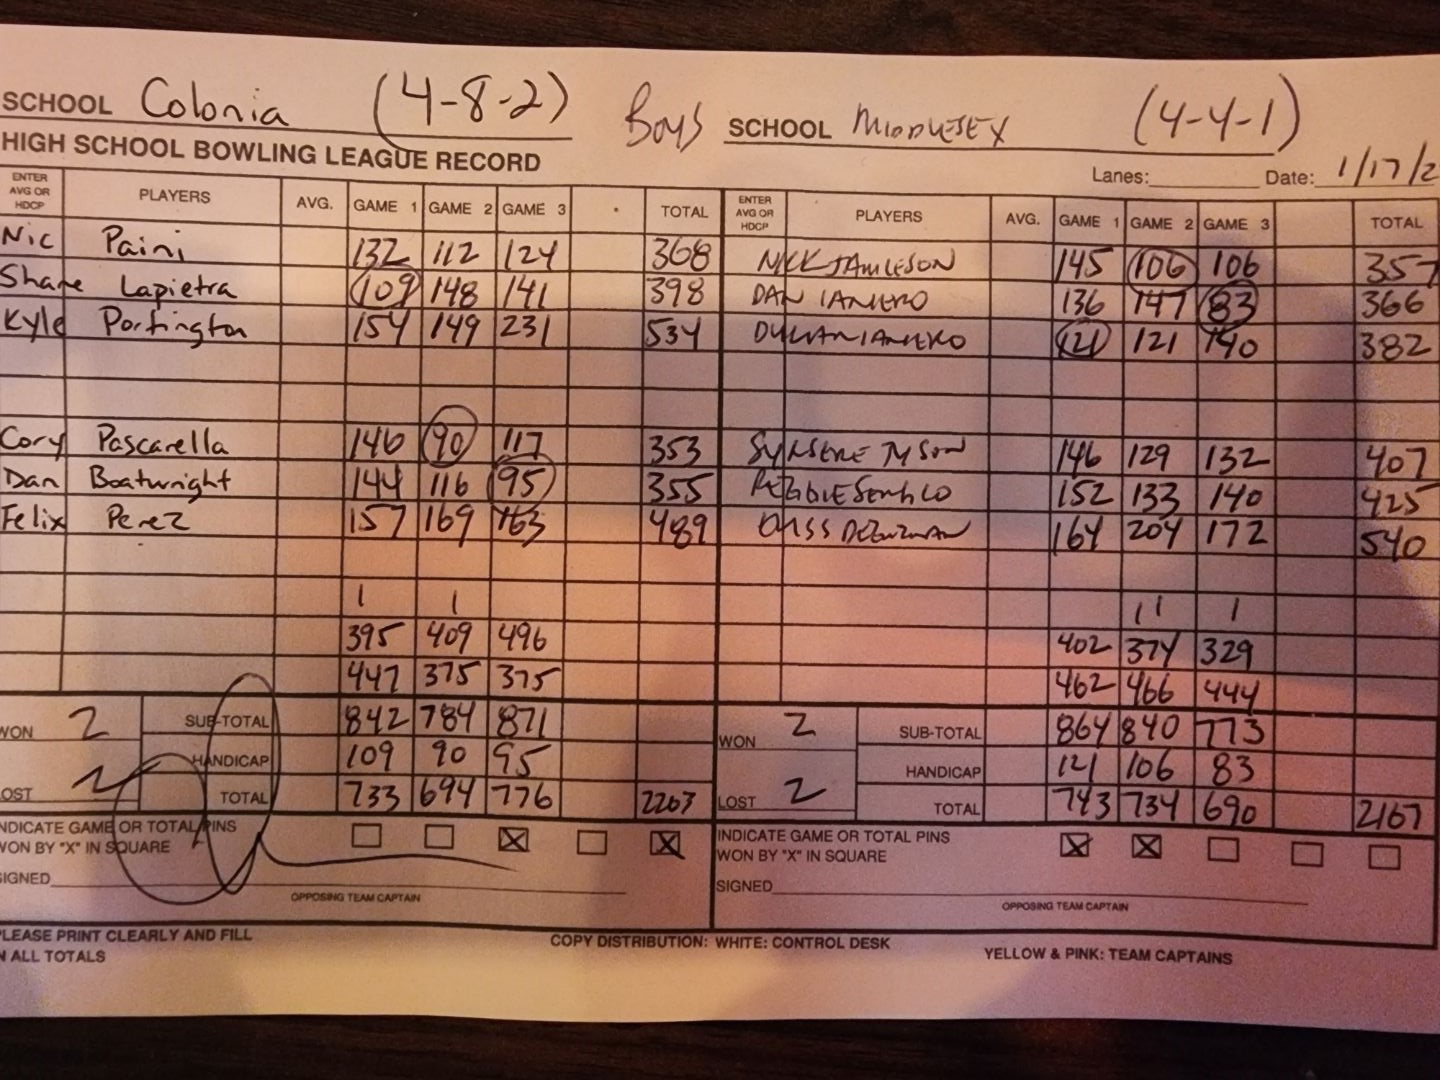 SCHOOL Colonia (4-8-2) Boys SCHOOL MIDDLESEX (4-4-1)
HIGH SCHOOL BOWLING LEAGUE RECORD Lanes: Date: 1/17/2
ENTER AVG OR HDCP PLAYERS AVG. GAME 1 GAME 2 GAME 3 TOTAL ENTER AVG OR HDCP PLAYERS AVG. GAME 1 GAME 2 GAME 3 TOTAL
Nic Paini 132 112 124 368 NICK JAMIESON 145 106 106 357
Shane Lapietra 109 148 141 398 DAN IANIERO 136 147 83 366
Kyle Portington 154 149 231 534 DYLAN IANIERO 121 121 140 382
Cory Pascarella 146 90 117 353 TYSON 146 129 132 407
Dan Boatwright 144 116 95 355 152 133 140 425
Felix Perez 157 169 163 489 164 204 172 540
1 1 1 1 1
395 409 496 402 374 329
447 375 375 462 466 444
WON 2 SUB-TOTAL 842 784 871 WON 2 SUB-TOTAL 864 840 773
HANDICAP 109 90 95 HANDICAP 121 106 83
LOST 2 TOTAL 733 694 776 2203 LOST 2 TOTAL 743 734 690 2167
INDICATE GAME OR TOTAL PINS X X INDICATE GAME OR TOTAL PINS X X
WON BY "X" IN SQUARE WON BY "X" IN SQUARE
SIGNED SIGNED
OPPOSING TEAM CAPTAIN OPPOSING TEAM CAPTAIN
PLEASE PRINT CLEARLY AND FILL COPY DISTRIBUTION: WHITE: CONTROL DESK YELLOW & PINK: TEAM CAPTAINS
IN ALL TOTALS